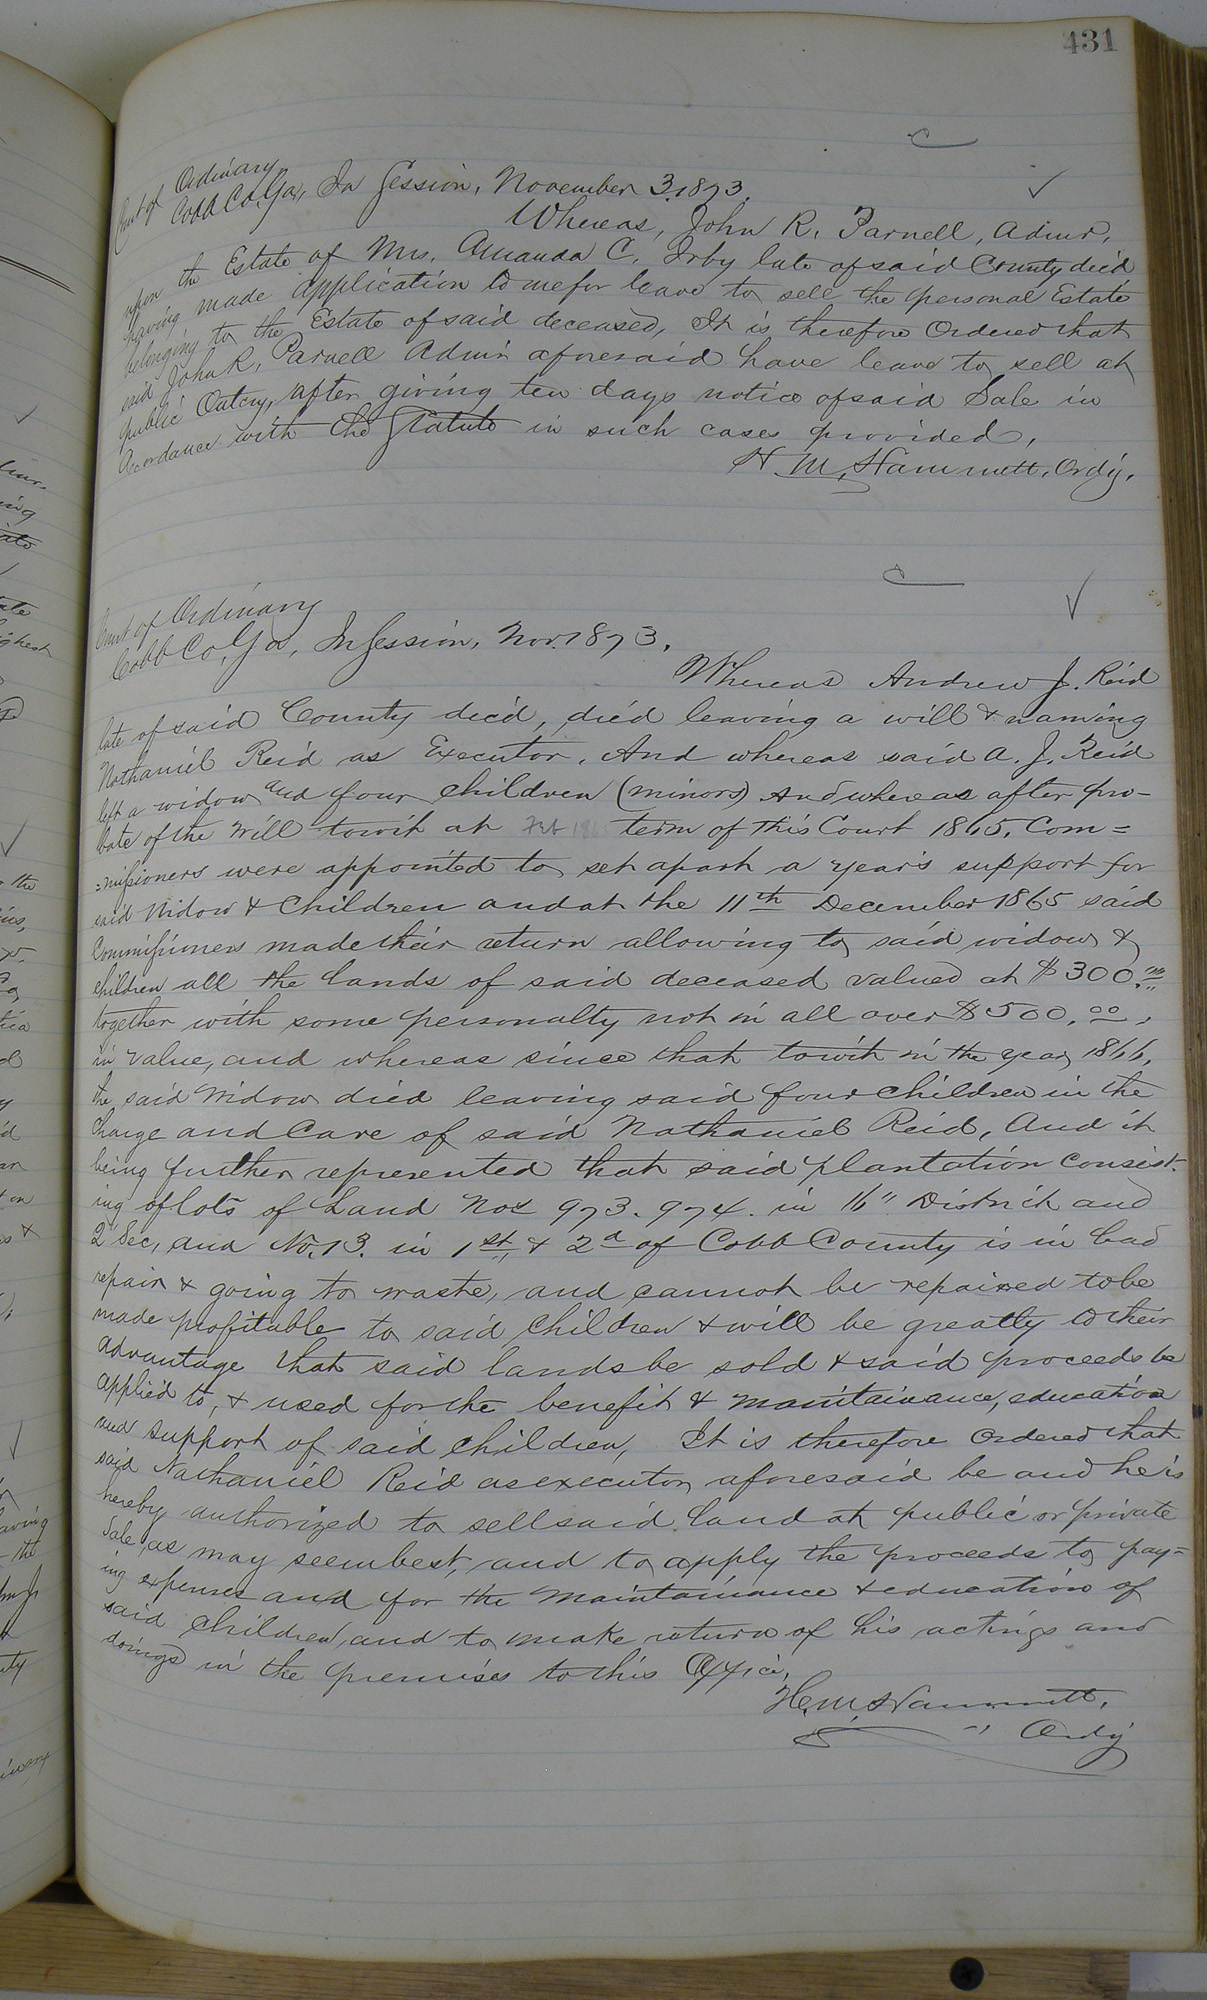 431
Court of Ordinary
Cobb Co, Ga, In Session, November 3. 1873.
Whereas, John R. Parnell, Admr,
upon the Estate of Mrs. Amanda C. Irby late of said County dec'd
having made application to me for leave to sell the personal Estate
belonging to the Estate of said deceased, It is therefore Ordered that
said John R, Parnell Admr aforesaid have leave to sell at
public Outcry, after giving ten days notice of said Sale in
Accordance with the Statute in such cases provided,
H. M. Hammett, Ordy.
Court of Ordinary
Cobb Co, Ga, In Session, Nov. 1873.
Whereas Andrew J. Reid
late of said County dec'd, died leaving a will & naming
Nathaniel Reid as Executor. And whereas said A. J. Reid
left a widow and four children (minors) And whereas after pro-
bate of the will towit at Feb term of this Court 1865, Com=
=missioners were appointed to set apart a year's support for
said Widow & Children and at the 11th December 1865 said
Commissioners made their return allowing to said widow &
children all the lands of said deceased valued at $300.00
together with some personalty not in all over $500.00,
in value, and whereas since that towit in the year 1866,
the said Widow died leaving said four children in the
Charge and Care of said Nathaniel Reid, And it
being further represented that said plantation consist-
ing of lots of Land Nos 973. 974. in 16" District and
2 Sec, and No. 13. in 1st & 2d of Cobb County is in bad
repair & going to waste, and cannot be repaired to be
made profitable to said children & will be greatly to their
advantage that said lands be sold & said proceeds be
applied to, & used for the benefit & maintainance, education
and support of said children, It is therefore Ordered that
said Nathaniel Reid as executor aforesaid be and he is
hereby authorized to sell said land at public or private
Sale, as may seem best, and to apply the proceeds to pay=
ing expenses and for the maintainance & education of
said children, and to make return of his actings and
doings in the premises to this Office,
H. M. Hammett,
Ordy